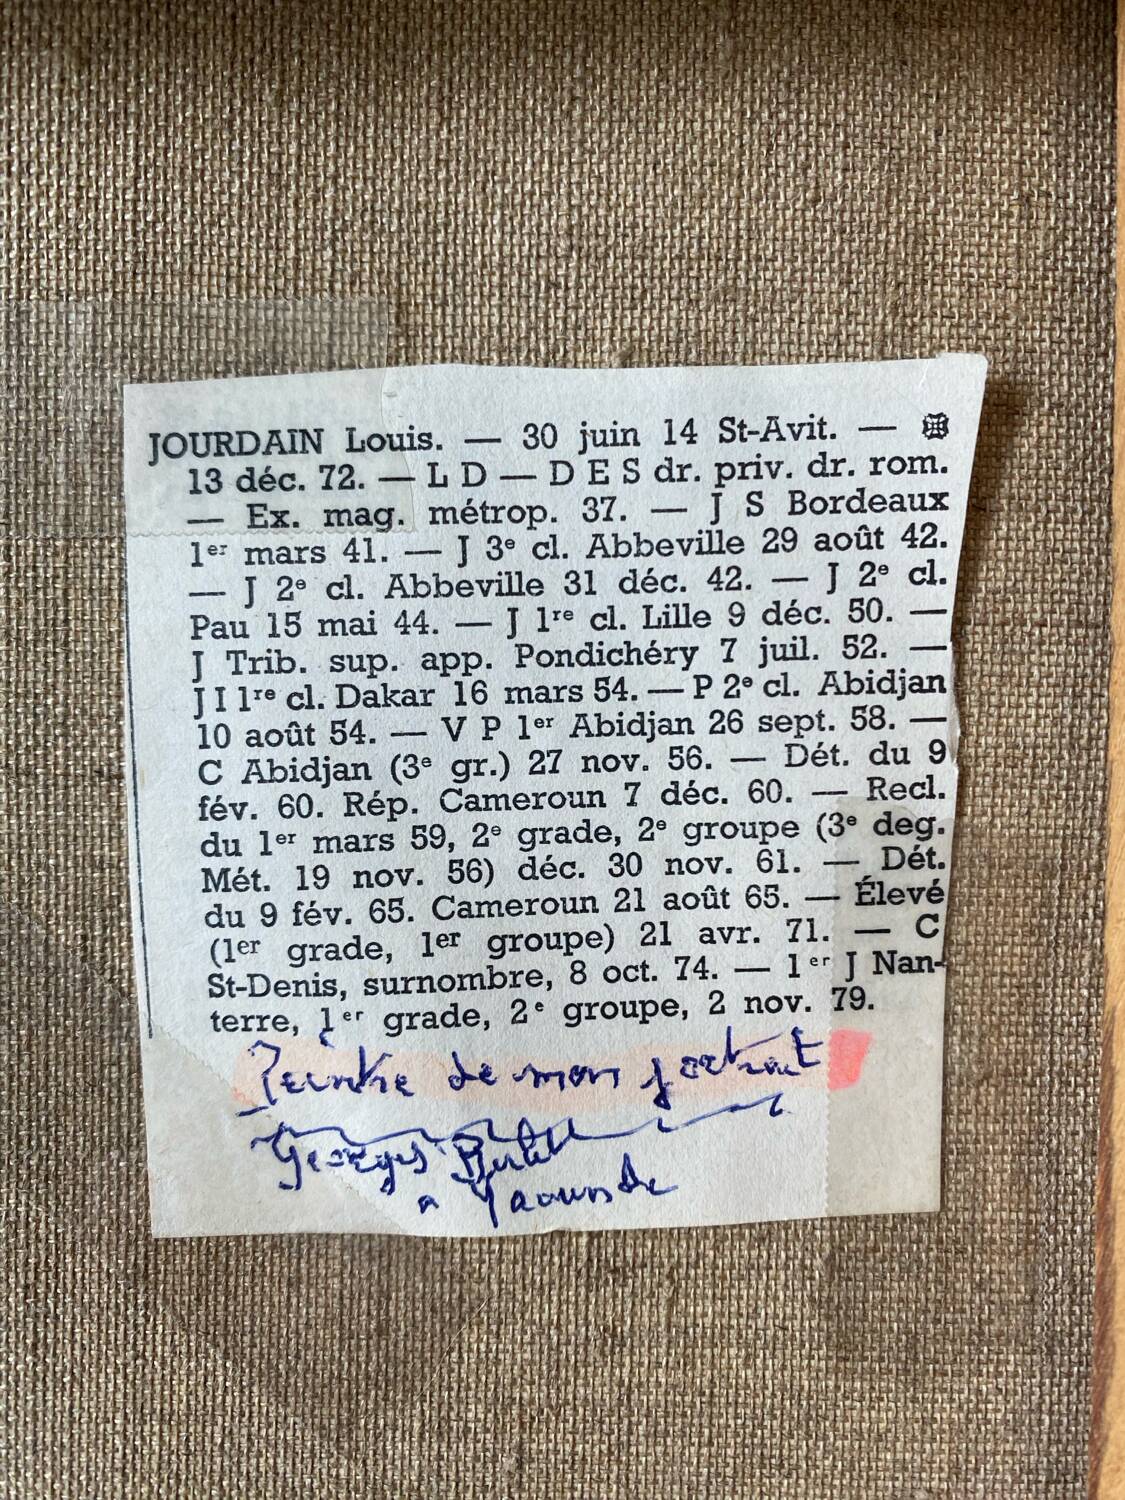 JOURDAIN Louis. — 30 juin 14 St-Avit. —
13 déc. 72. — L D — D E S dr. priv. dr. rom.
— Ex. mag. métrop. 37. — J S Bordeaux
1er mars 41. — J 3e cl. Abbeville 29 août 42.
— J 2e cl. Abbeville 31 déc. 42. — J 2e cl.
Pau 15 mai 44. — J 1re cl. Lille 9 déc. 50. —
J Trib. sup. app. Pondichéry 7 juil. 52. —
J I 1re cl. Dakar 16 mars 54. — P 2e cl. Abidjan
10 août 54. — V P 1er Abidjan 26 sept. 58. —
C Abidjan (3e gr.) 27 nov. 56. — Dét. du 9
fév. 60. Rép. Cameroun 7 déc. 60. — Recl.
du 1er mars 59, 2e grade, 2e groupe (3e deg.
Mét. 19 nov. 56) déc. 30 nov. 61. — Dét.
du 9 fév. 65. Cameroun 21 août 65. — Élevé
(1er grade, 1er groupe) 21 avr. 71. — C
St-Denis, surnombre, 8 oct. 74. — 1er J Nan-
terre, 1er grade, 2e groupe, 2 nov. 79.
Peintre de mon portrait
Georges
a Yaounde